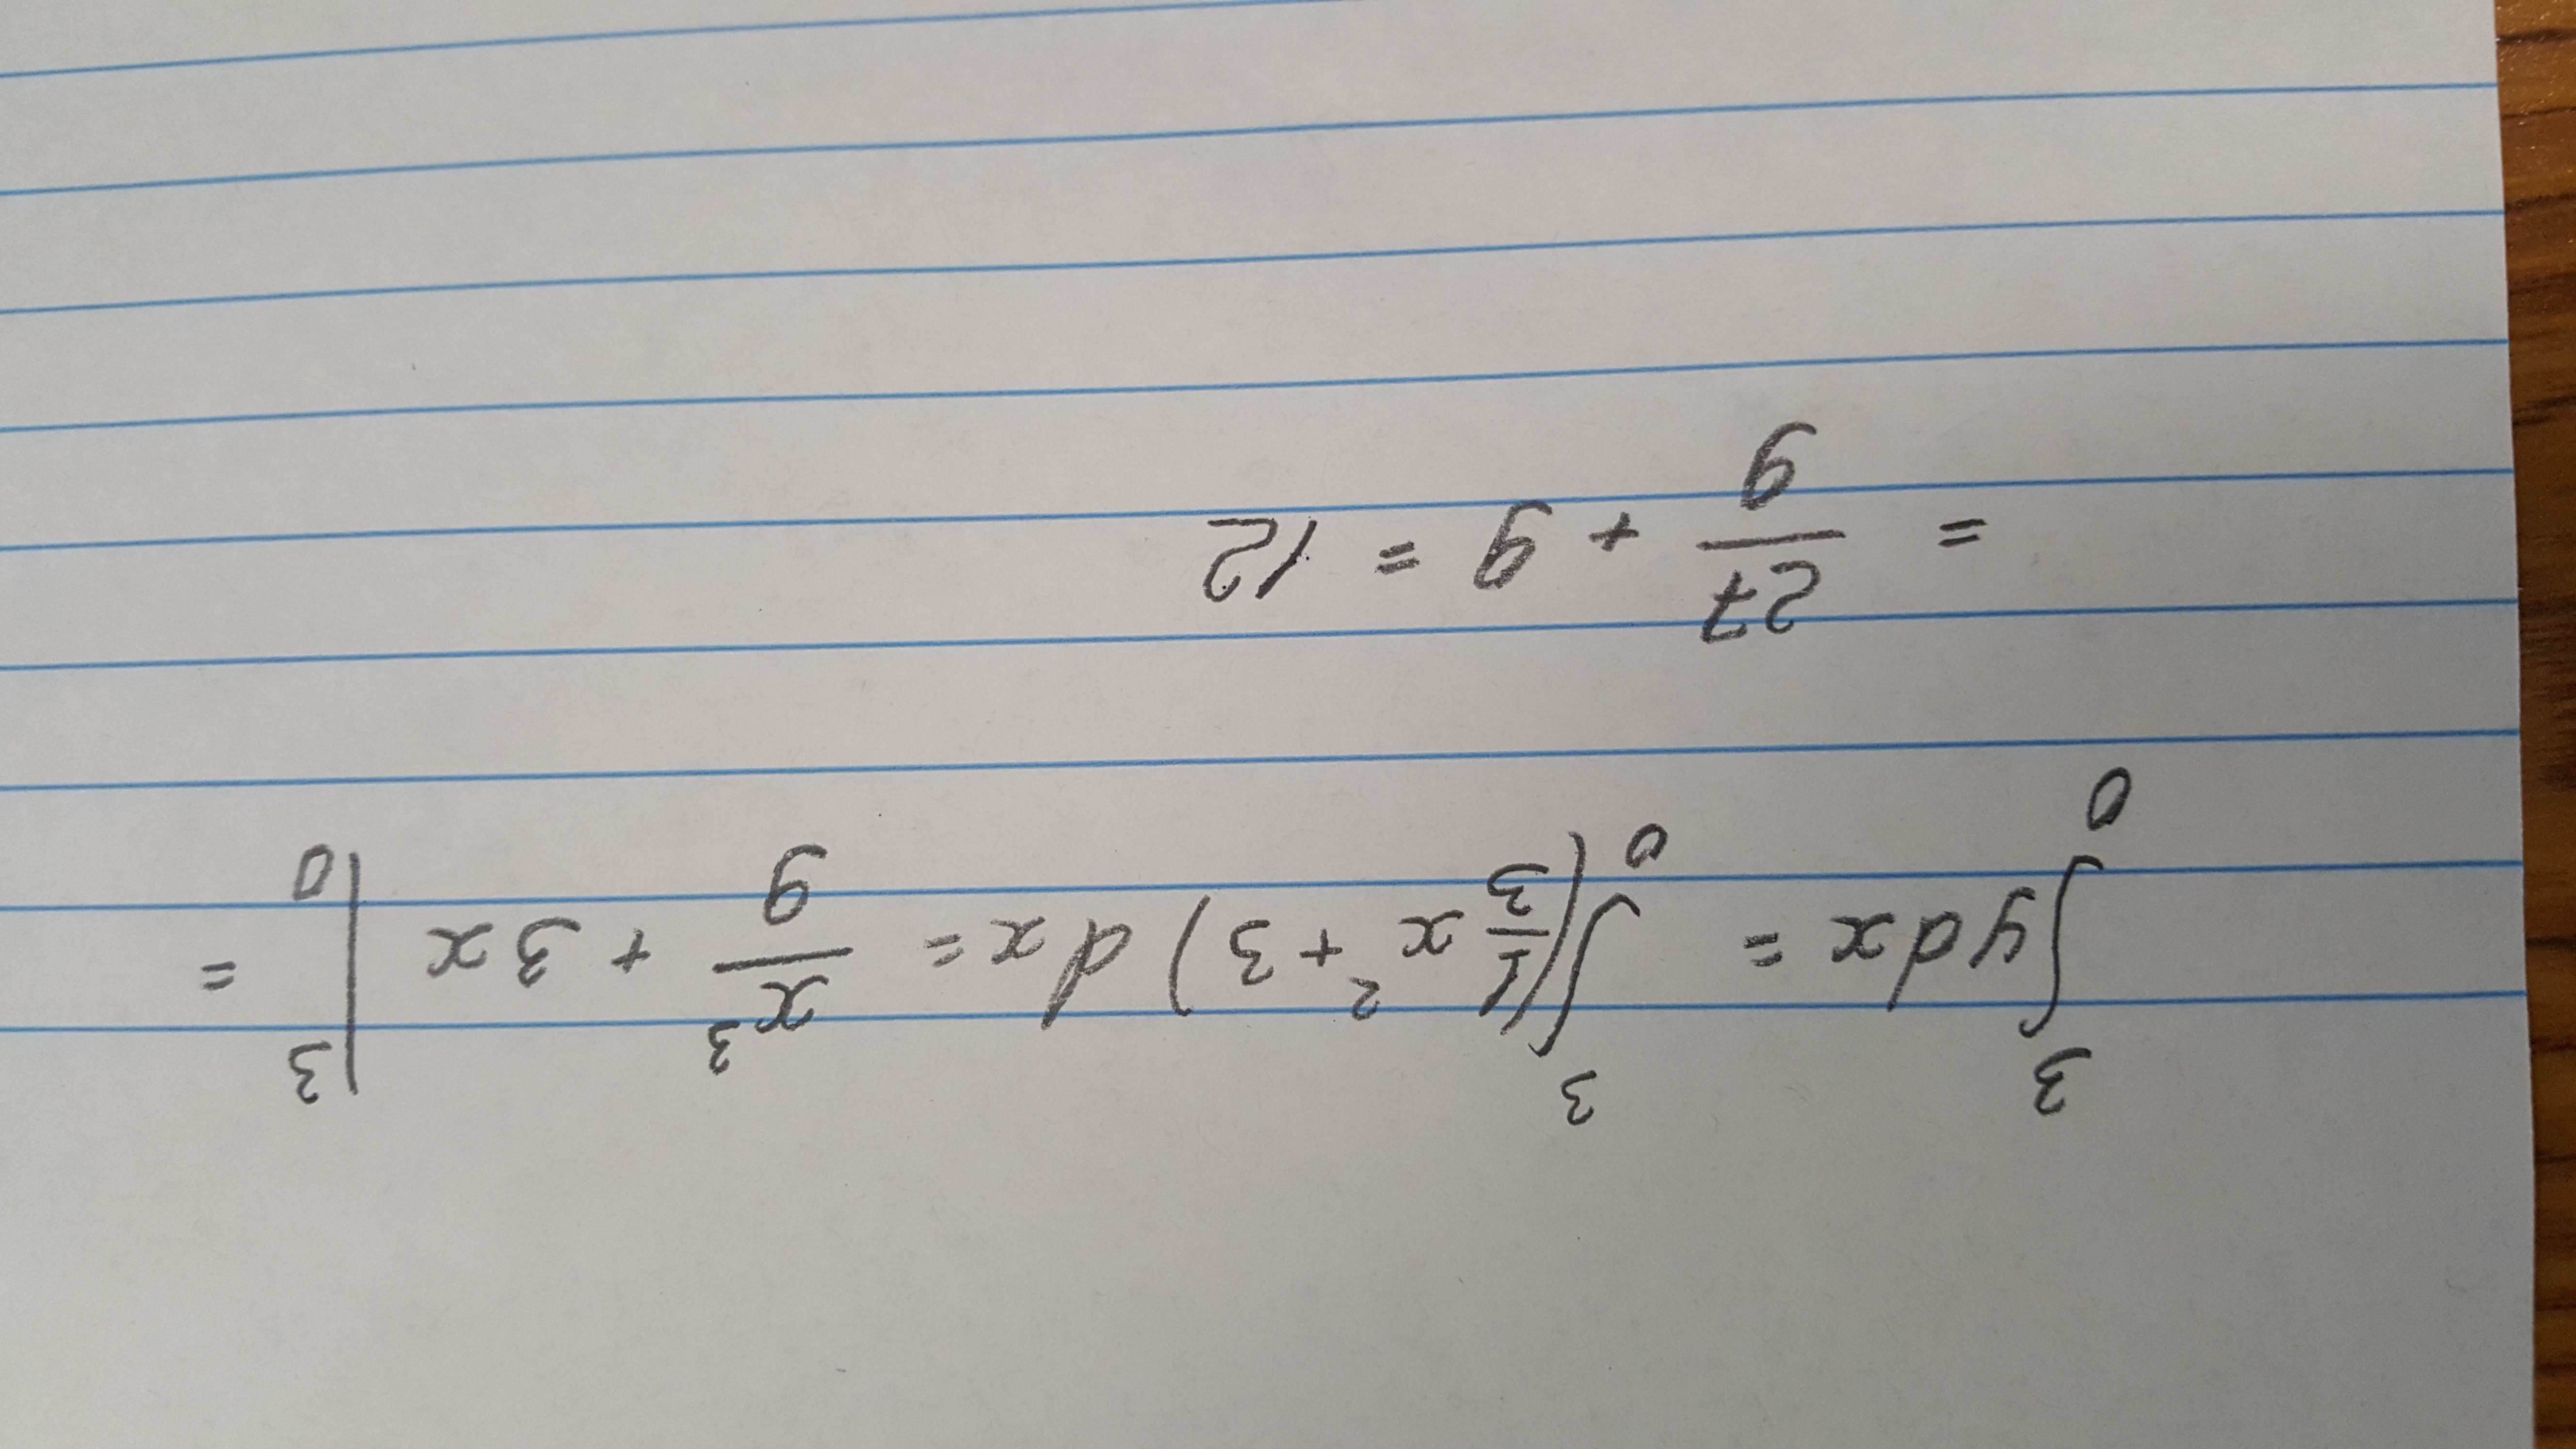 ∫₀³ y dx = ∫₀³ (1/3 x² + 3) dx = x³/9 + 3x |₀³ =
= 27/9 + 9 = 12